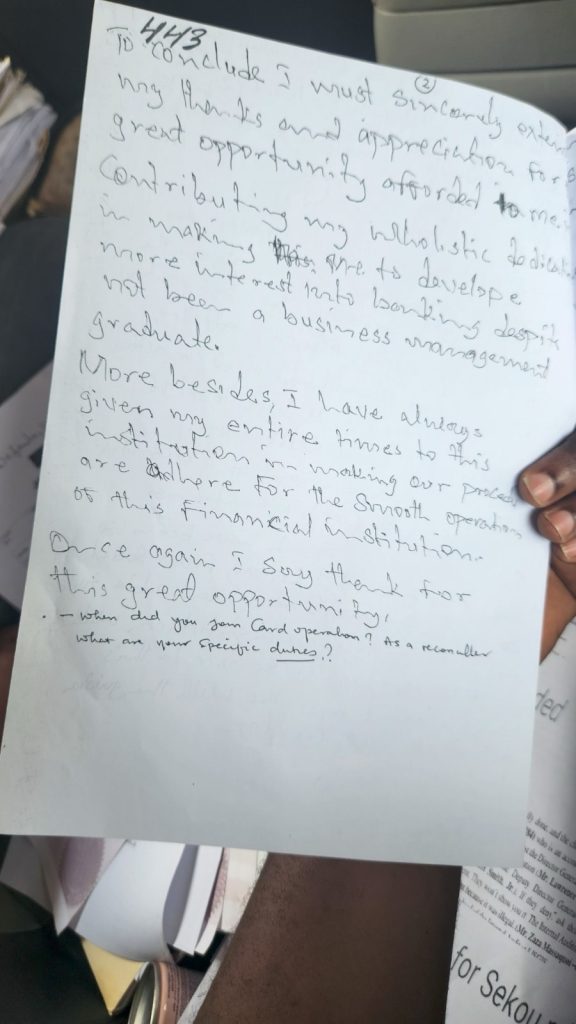 443
②
To conclude I must sincerely exten
my thanks and appreciation for s
great opportunity afforded to me.
Contributing my wholistic dedicat
in making me to develope
more interest into banking despit
not been a business management
graduate.
More besides, I have always
given my entire times to this
institution in making our proced
are adhere for the smooth operation
of this financial institution.
Once again I say thank for
this great opportunity,
- when did you join Card operation? As a reconciler
what are your specific duties?
ded
for Sekou